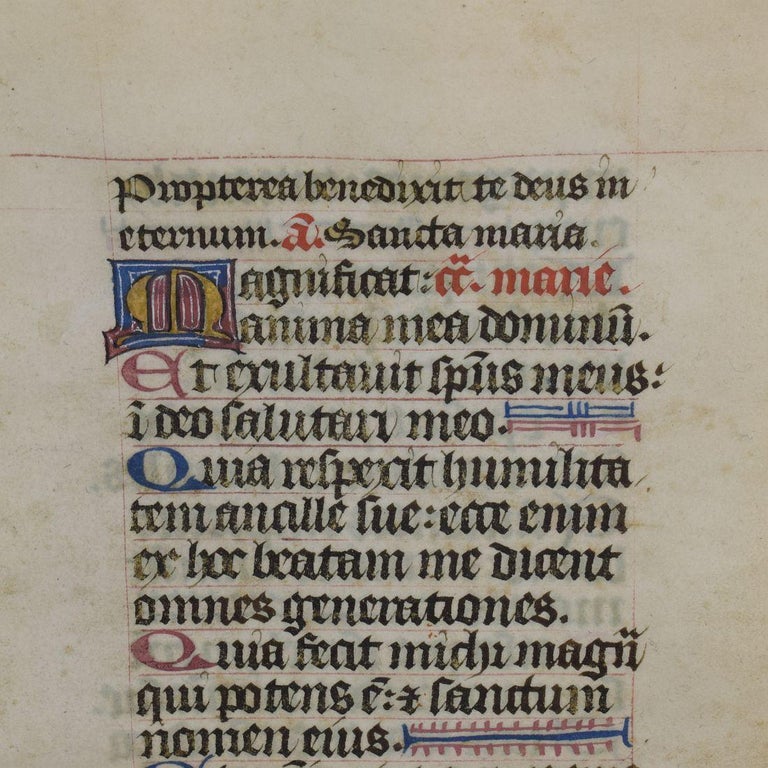 Propterea benedixit te deus in
eternum. Añ. Sancta maria.
Magnificat: cc̃. marie.
anima mea dominũ.
Et exultavit sp̃us meus:
ĩ deo salutari meo.
Quia respexit humilita
tem ancille sue: ecce enim
ex hoc beatam me dicent
omnes generationes.
Quia fecit michi magñ
qui potens ẽ: ⁊ sanctum
nomen eius.